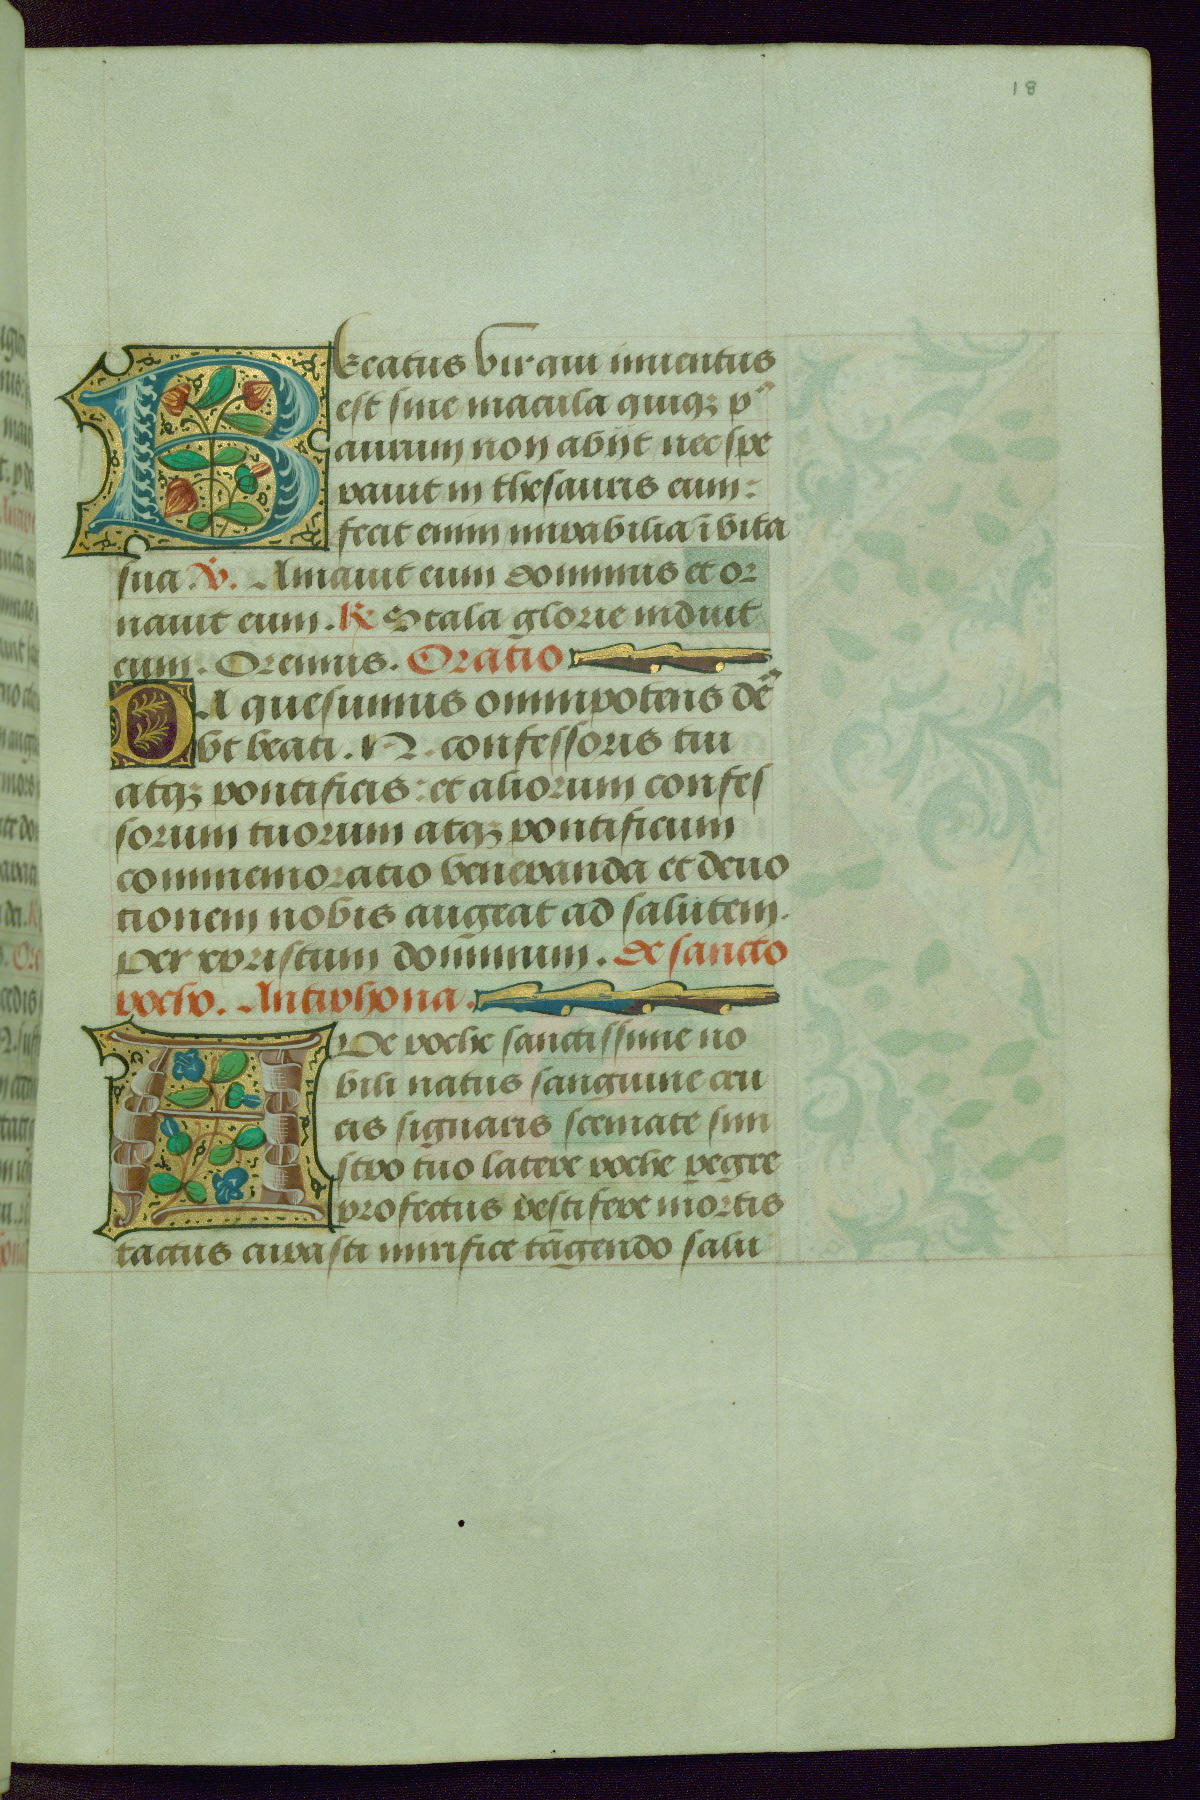 18
Beatus vir qui inuentus
est sine macula quiqꝫ pᵒ
aurum non abijt nec spe
rauit in thesauris eum:
fecit eum mirabilia ī vita
sua. ℣. Amauit eum dominus et or
nauit eum. ℟ Stala glorie induit
eum. Oremus. Oratio
DA quesumus omnipotens deᵘˢ
vt beati .N. confessoris tui
atqꝫ pontificis: et aliorum confes
sorum tuorum atqꝫ pontificum
commemoratio veneranda et deuo
tionem nobis augeat ad salutem.
Per xpristum dominum. De sancto
rocho. Antiphona.
AVe roche sanctissime no
bili natus sanguine cru
cis signaris scemate sini
stro tuo latere roche pegre
profectus pestifere mortis
tactus curasti mirifice tāgendo salu